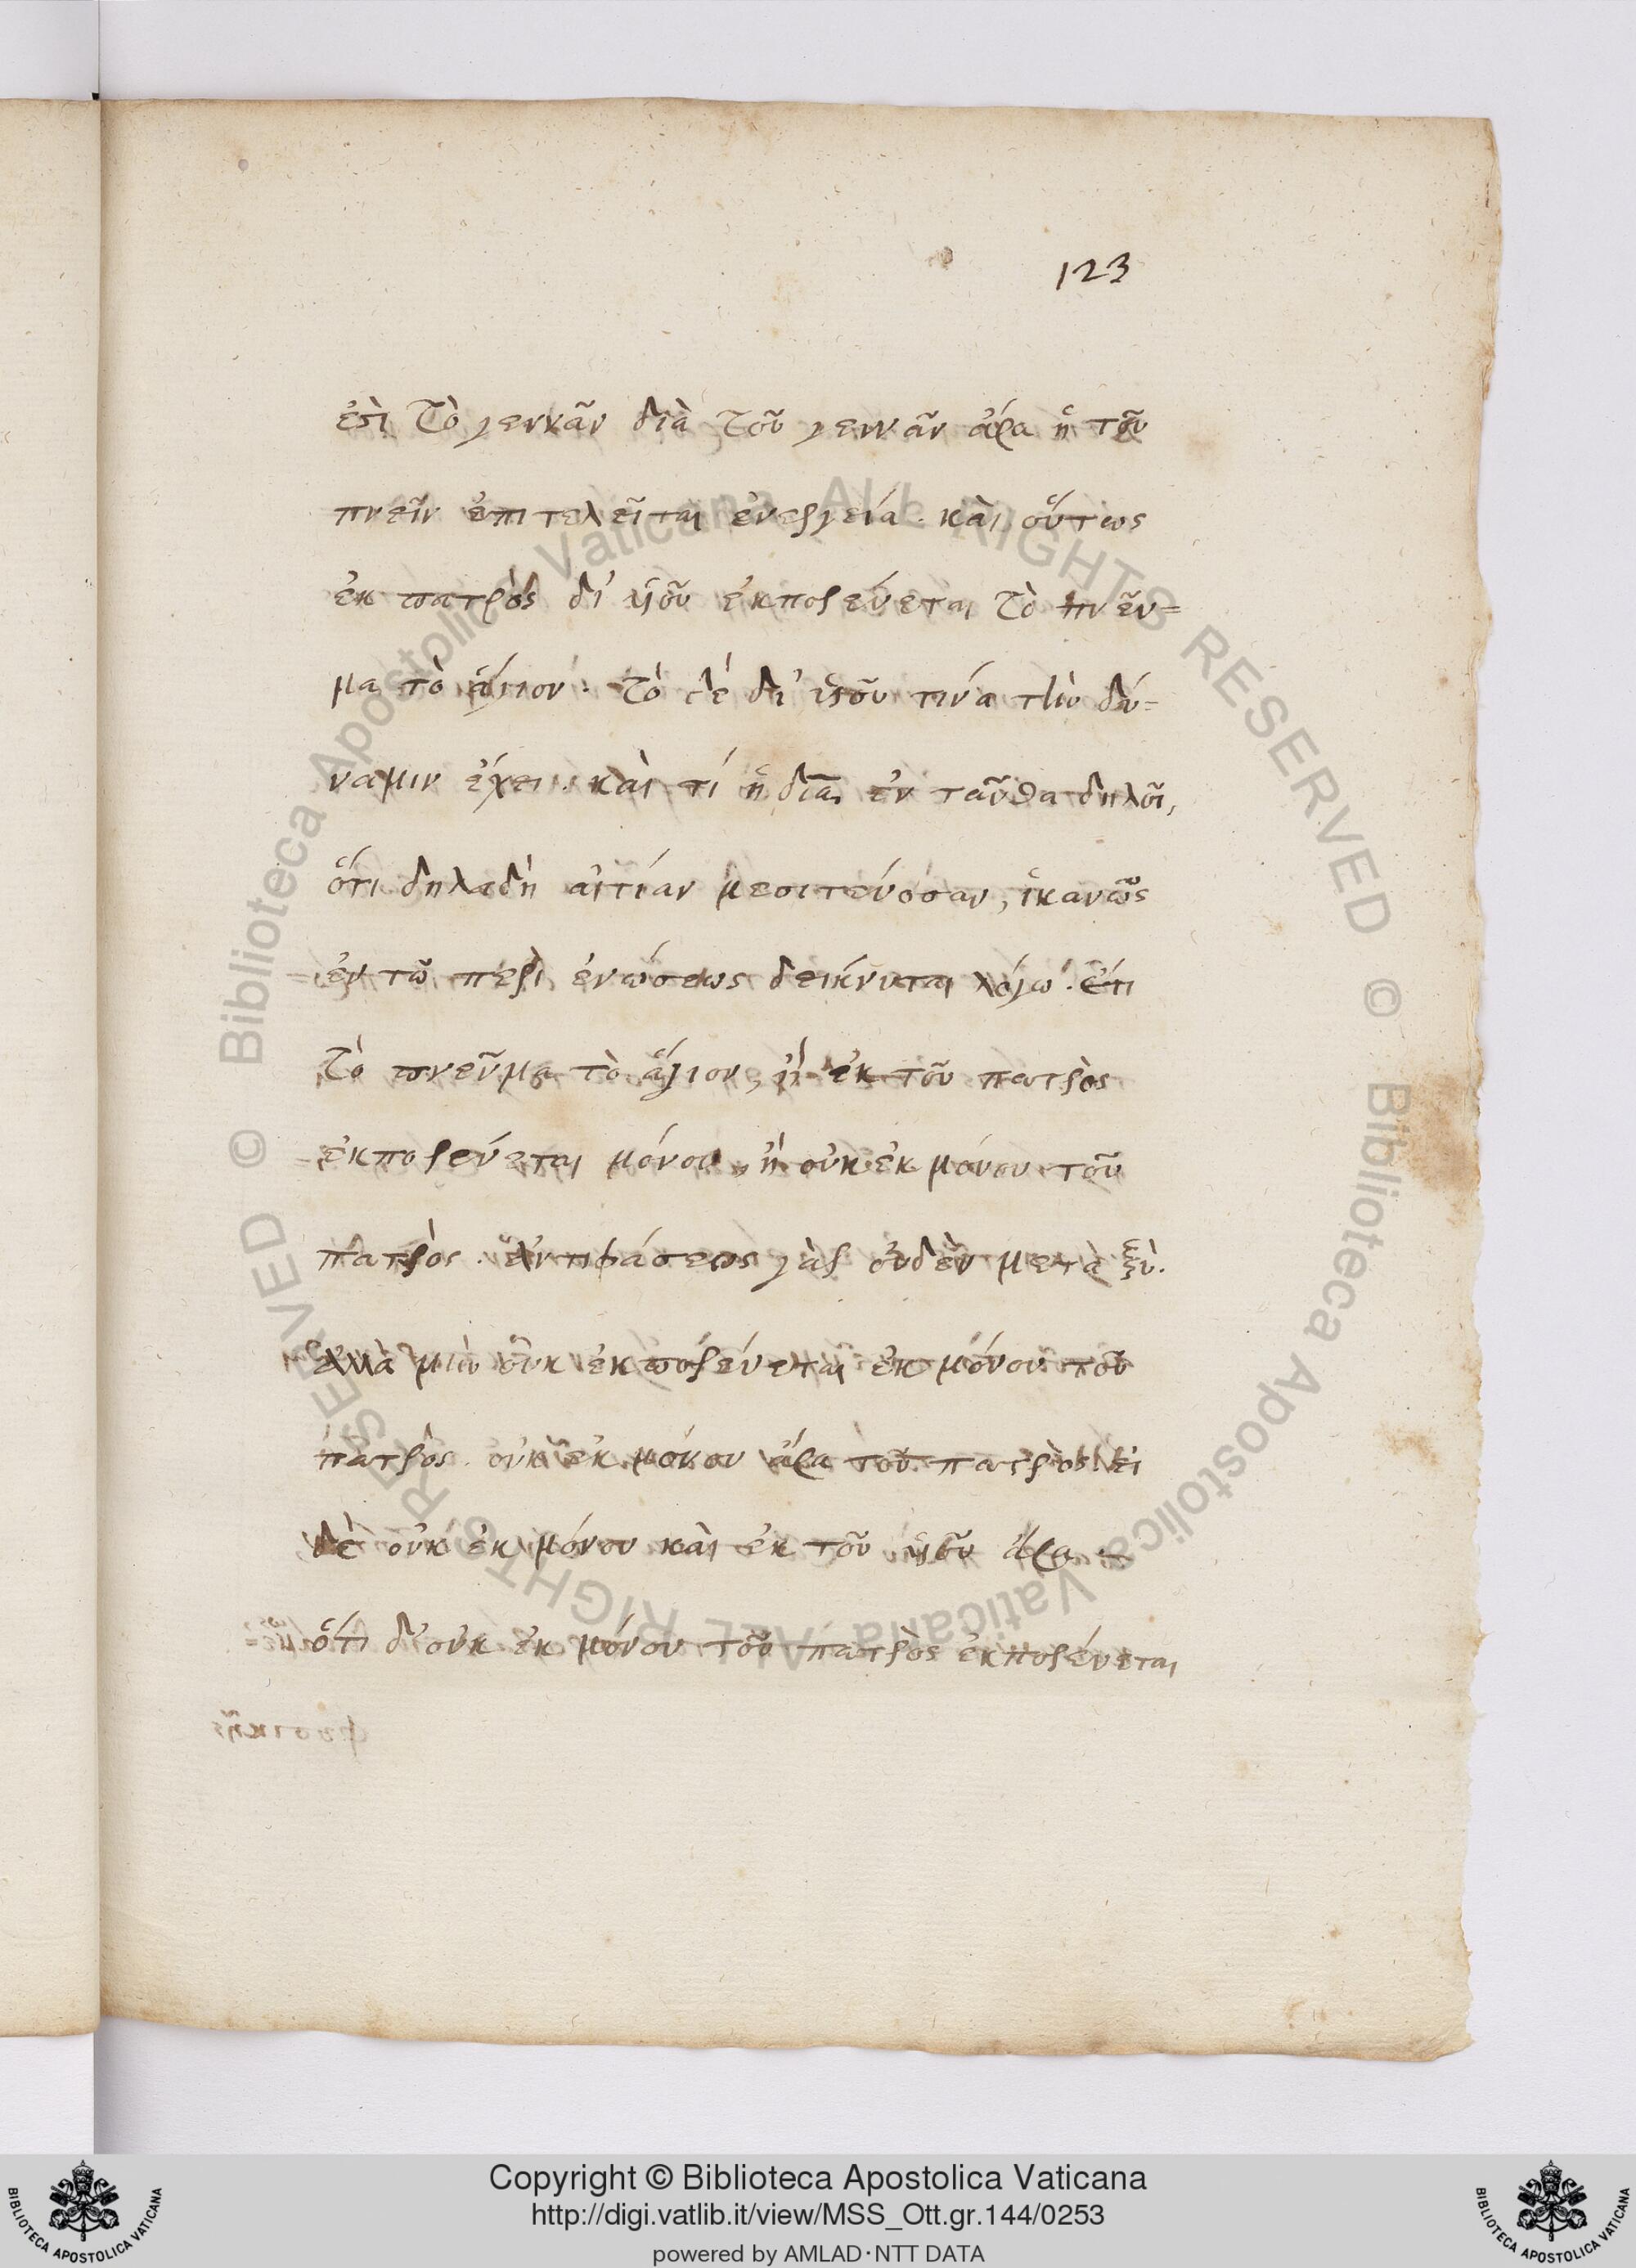 123
ἐστὶ τὸ γεννᾶν διὰ τοῦ γεννᾶν ἄρα ἡ τοῦ
πνεῖν ἐπιτελεῖται ἐνεργεία. καὶ οὕτως
ἐκ πατρὸς δι' ὑιοῦ ἐκπορεύεται τὸ πνεῦ=
μα τὸ ἅγιον. τὸ δέ δι' ὑιοῦ τινά τὴν δύ=
ναμιν ἔχει. καὶ τί ἡ διὰ ἐν ταῦθα δηλοῖ,
ὅτι δηλαδὴ αἰτίαν μεσιτεύουσαν, ἱκανῶς
ἐν τῶ περὶ ἑνώσεως δείκνυται λόγω. ἔτι
τὸ πνεῦμα τὸ ἅγιον, ἢ ἐκ τοῦ πατρὸς
ἐκπορεύεται μόνου, ἢ οὐκ ἐκ μόνου τοῦ
πατρὸς. ἀντιφάσεως γὰρ οὐδὲν μεταξὺ.
ἀλλὰ μὴν οὐκ ἐκπορεύεται ἐκ μόνου τοῦ
πατρὸς. οὐκ ἐκ μόνου ἄρα τοῦ πατρὸς. εἰ
δὲ οὐκ ἐκ μόνου καὶ ἐκ τοῦ ὑιοῦ ἄρα
ὅτι δ' οὐκ ἐκ μόνου τοῦ πατρὸς ἐκπορεύεται
© Biblioteca Apostolica Vaticana ALL RIGHTS RESERVED © Biblioteca Apostolica Vaticana ALL RIGHTS RESERVED
Copyright © Biblioteca Apostolica Vaticana
http://digi.vatlib.it/view/MSS_Ott.gr.144/0253
powered by AMLAD·NTT DATA
BIBLIOTECA APOSTOLICA VATICANA
BIBLIOTECA APOSTOLICA VATICANA